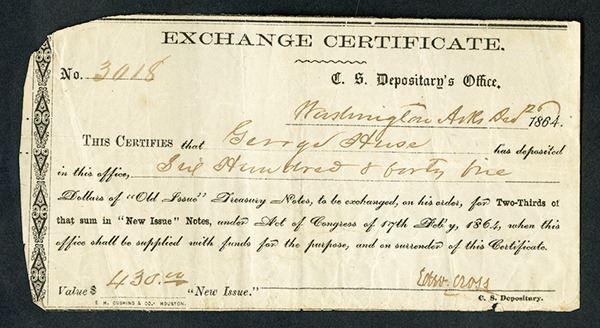 EXCHANGE CERTIFICATE.
No. 3018
C. S. Depositary's Office,
Washington Arks Dec 1864.
THIS CERTIFIES that George Huse has deposited
in this office, Six Hundred & forty five
Dollars of "Old Issue" Treasury Notes, to be exchanged, on his order, for Two-Thirds of
that sum in "New Issue" Notes, under Act of Congress of 17th Feb'y, 1864, when this
office shall be supplied with funds for the purpose, and on surrender of this Certificate.
Value $ 430.00 "New Issue."
Edw. Cross
E. H. CUSHING & CO., HOUSTON.
C. S. Depositary.